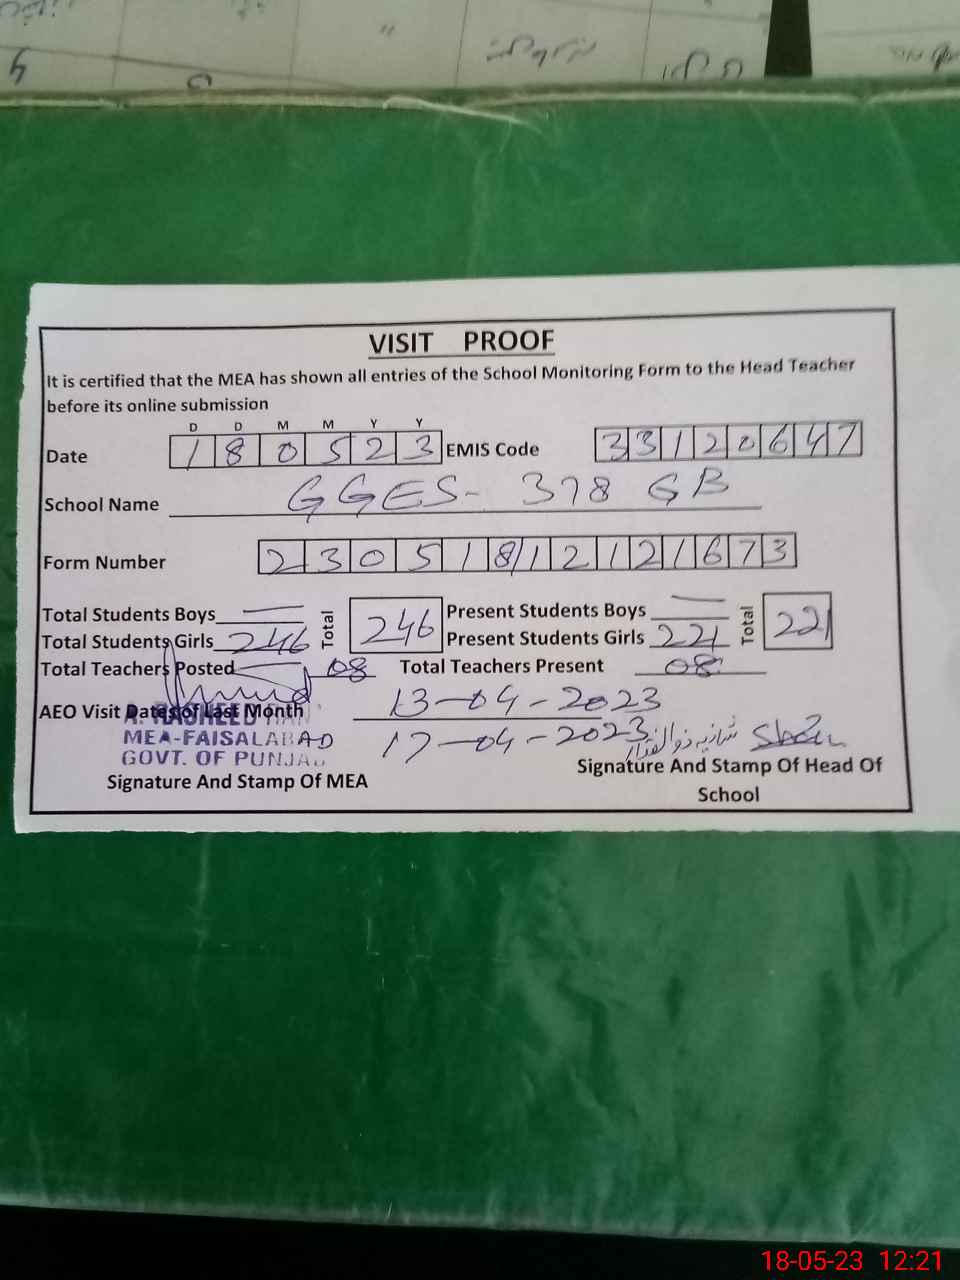 VISIT PROOF
It is certified that the MEA has shown all entries of the School Monitoring Form to the Head Teacher
before its online submission
D D M M Y Y
Date 180523 EMIS Code 33120647
School Name GGES- 378 GB
Form Number 23051812121673
Total Students Boys — Total 246 Present Students Boys — Total 221
Total Students Girls 246 Present Students Girls 221
Total Teachers Posted 08 Total Teachers Present 08
AEO Visit Dates of Last Month 13-04-2023
17-04-2023 شازیہ ذوالفقار
A. RASHEED
MEA-FAISALABAD
GOVT. OF PUNJAB
Signature And Stamp Of MEA
Signature And Stamp Of Head Of
School
18-05-23 12:21